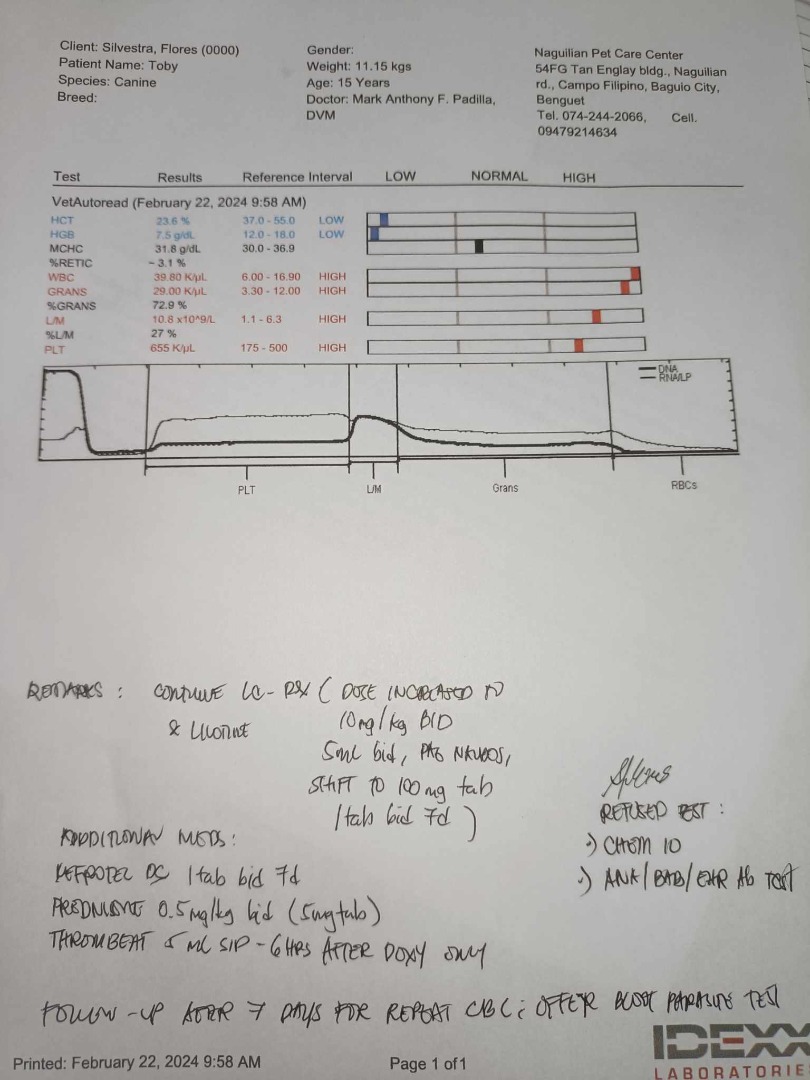 Client: Silvestra, Flores (0000)
Patient Name: Toby
Species: Canine
Breed:
Gender:
Weight: 11.15 kgs
Age: 15 Years
Doctor: Mark Anthony F. Padilla,
DVM
Naguilian Pet Care Center
54FG Tan Englay bldg., Naguilian
rd., Campo Filipino, Baguio City,
Benguet
Tel. 074-244-2066, Cell.
09479214634
Test Results Reference Interval LOW NORMAL HIGH
VetAutoread (February 22, 2024 9:58 AM)
HCT 23.6 % 37.0 - 55.0 LOW
HGB 7.5 g/dL 12.0 - 18.0 LOW
MCHC 31.8 g/dL 30.0 - 36.9
%RETIC ~ 3.1 %
WBC 39.80 K/µL 6.00 - 16.90 HIGH
GRANS 29.00 K/µL 3.30 - 12.00 HIGH
%GRANS 72.9 %
L/M 10.8 x10^9/L 1.1 - 6.3 HIGH
%L/M 27 %
PLT 655 K/µL 175 - 500 HIGH
DNA
RNA/LP
PLT L/M Grans RBCs
REMARKS : CONTINUE LC- (DOSE INCREASED TO
& 10mg/kg BID
5ml bid, PAG NAUBOS,
SHIFT TO 100 mg tab
1 tab bid 7d)
REFUSED TEST :
·) CHEM 10
·) ANA/BAB/EHR Ab TEST
ADDITIONAL MEDS:
1 tab bid 7d
0.5mg/kg bid (5mg tab)
THROMBEAT 5 ML - 6 HRS AFTER DOXY ONLY
FOLLOW-UP AFTER 7 DAYS FOR REPEAT CBC ; OFFER BLOOD PARASITE TEST
IDEXX
LABORATORIE
Printed: February 22, 2024 9:58 AM Page 1 of 1